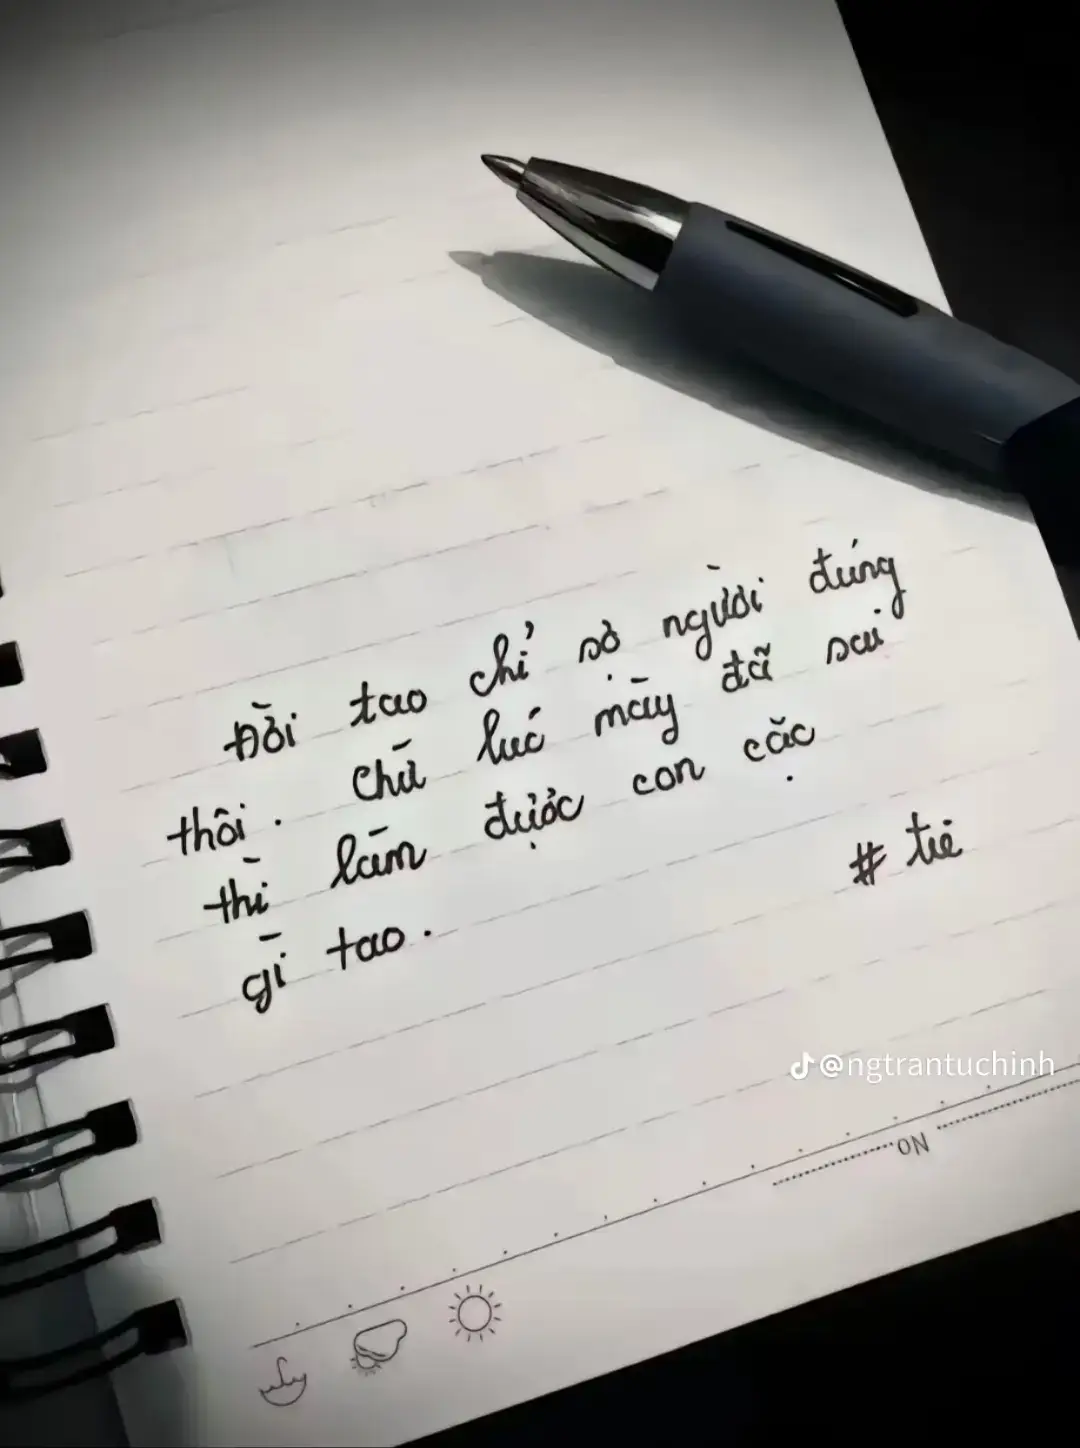 Đời tao chỉ sợ người đúng
thôi. Chứ lúc mày đã sai
thì làm được con cặc
gì tao.
# tie
@ngtrantuchinh
NO